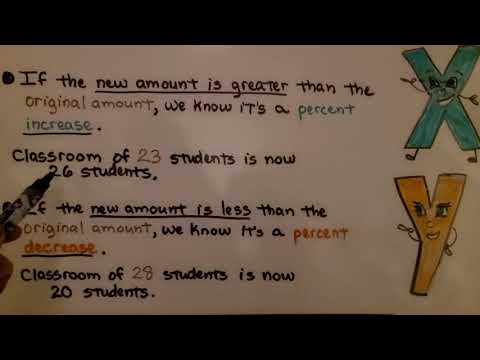 If the new amount is greater than the
original amount, we know it's a percent
increase.
Classroom of 23 students is now
26 students.
If the new amount is less than the
original amount, we know it's a percent
decrease.
Classroom of 28 students is now
20 students.
X
Y